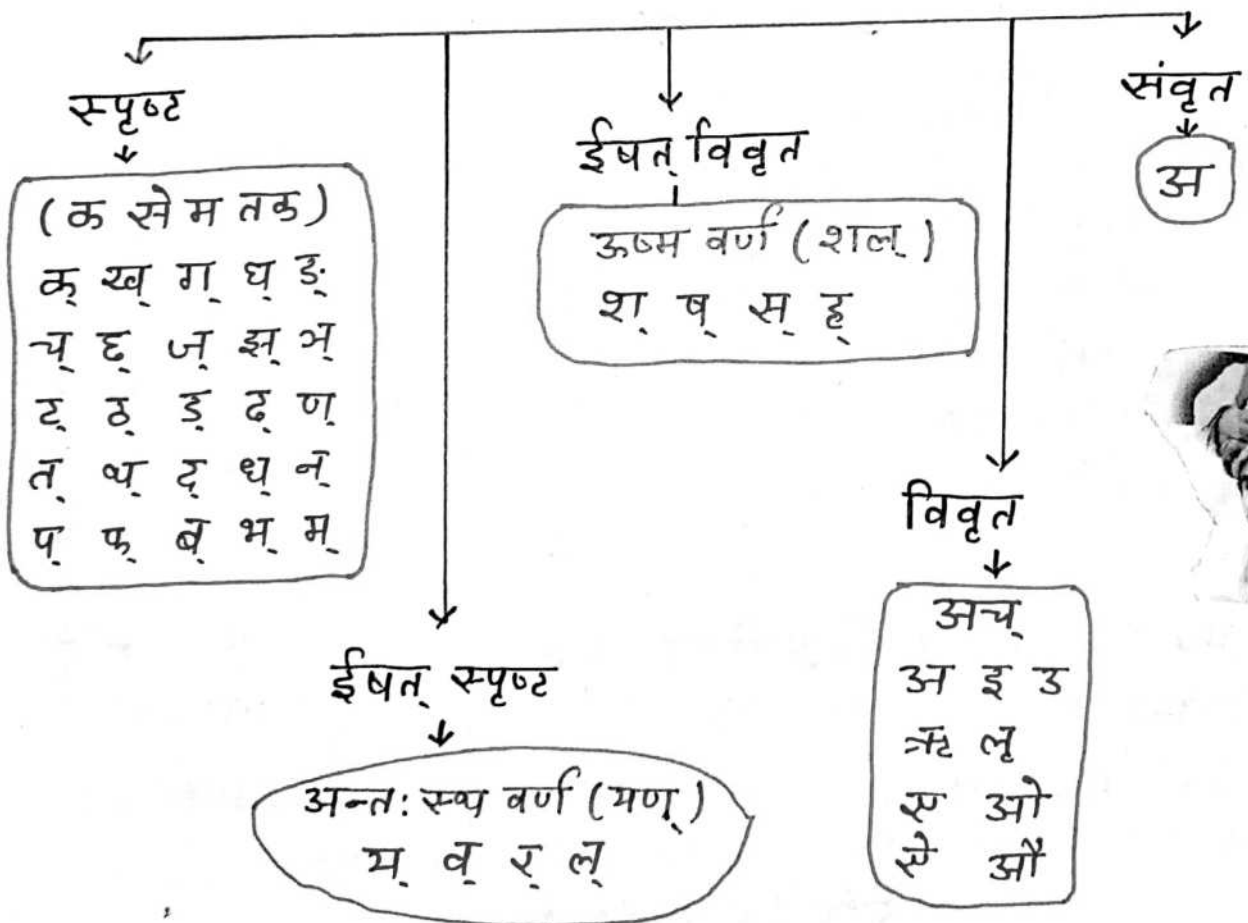 स्पृष्ट
(क से म तक)
क् ख् ग् घ् ङ्
च् छ् ज् झ् ञ्
ट् ठ् ड् ढ् ण्
त् थ् द् ध् न्
प् फ् ब् भ् म्
ईषत् स्पृष्ट
अन्त: स्थ वर्ण (यण्)
य् व् र् ल्
ईषत् विवृत
ऊष्म वर्ण (शल्)
श् ष् स् ह्
विवृत
अच्
अ इ उ
ऋ लृ
ए ओ
ऐ औ
संवृत
अ